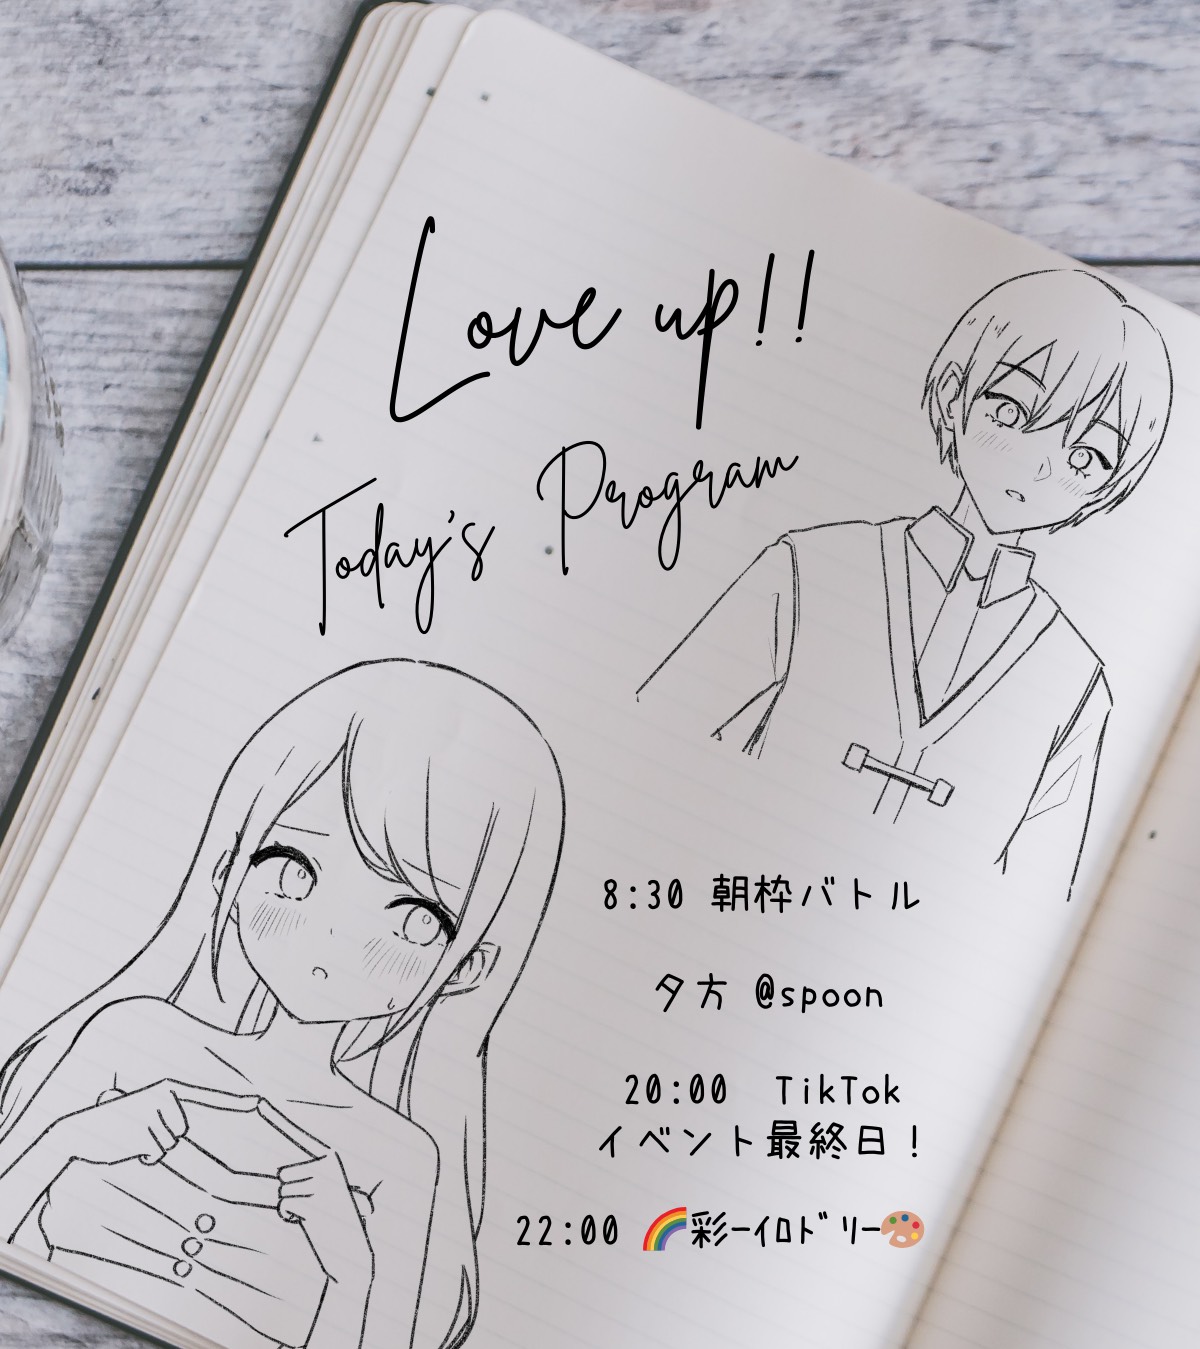 Love up!!
Today's Program
8:30 朝枠バトル
夕方 @spoon
20:00 TikTok
イベント最終日！
22:00 🌈彩ーｲﾛﾄﾞﾘー🎨